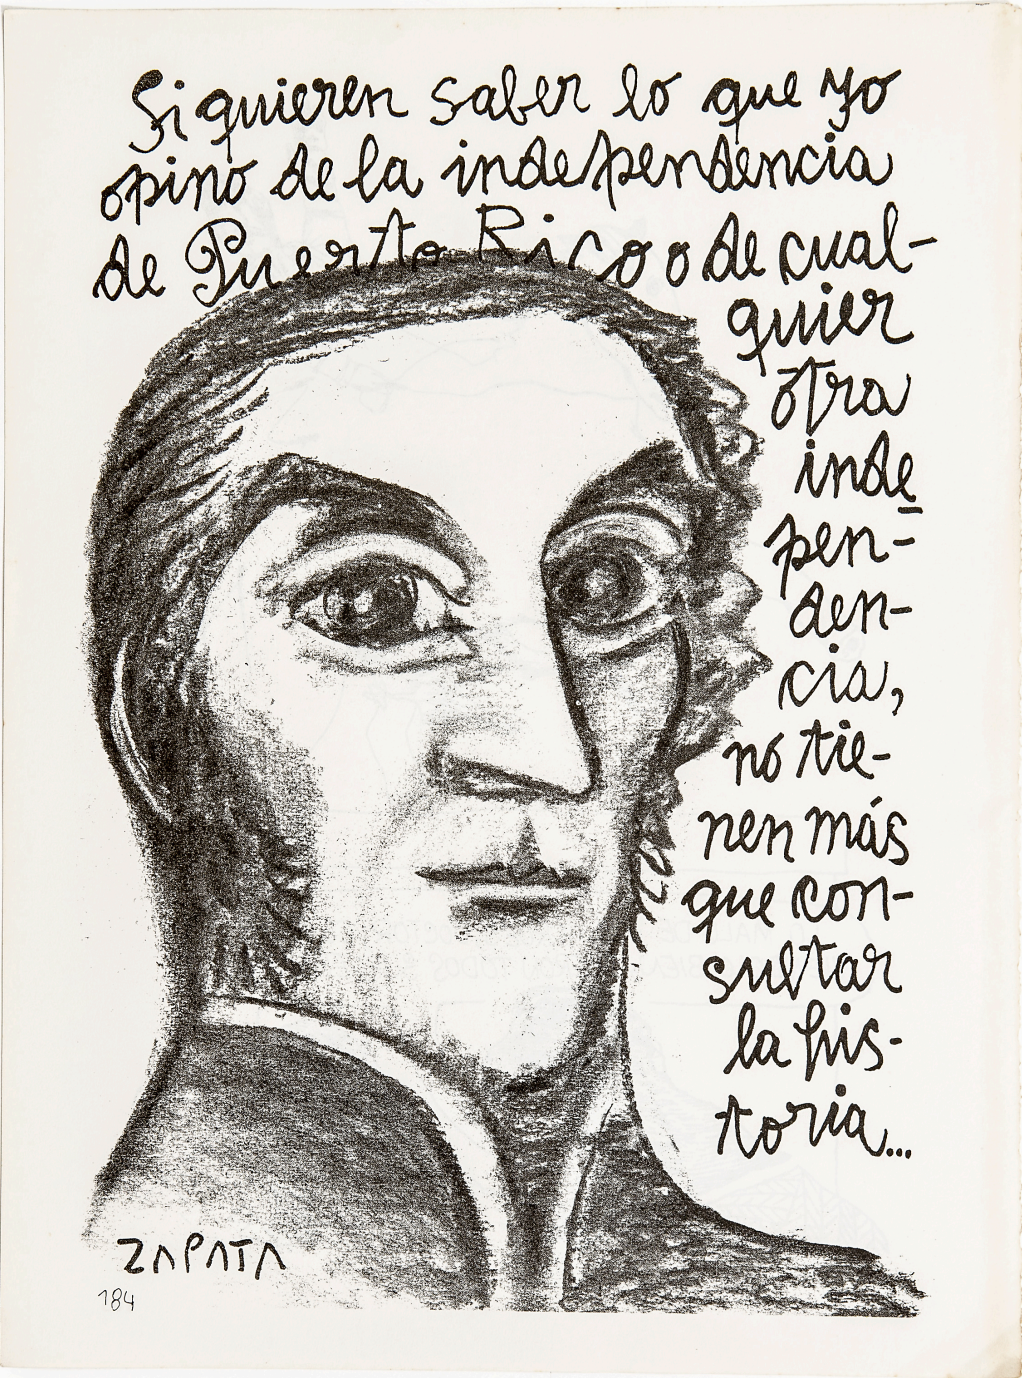 Si quieren saber lo que yo
opino de la independencia
de Puerto Rico o de cual-
quier
otra
inde
pen-
den-
cia,
no tie-
nen más
que con-
sultar
la his-
toria...
ZAPATA
184